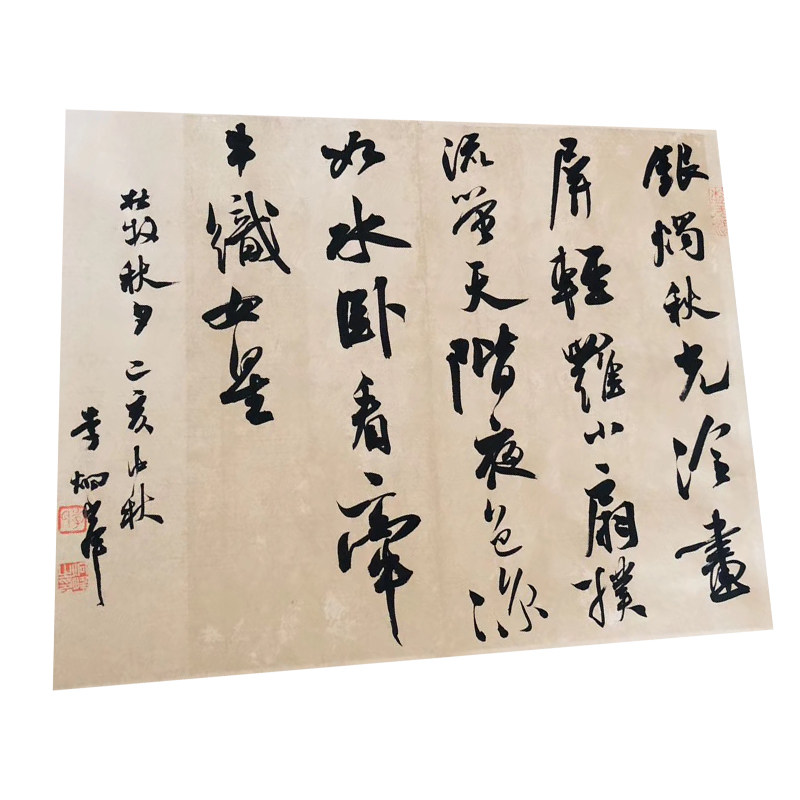 銀燭秋光冷畫
屏輕羅小扇撲
流螢天階夜色涼
如水卧看牽
牛織女星
杜牧秋夕 己亥仲秋
李